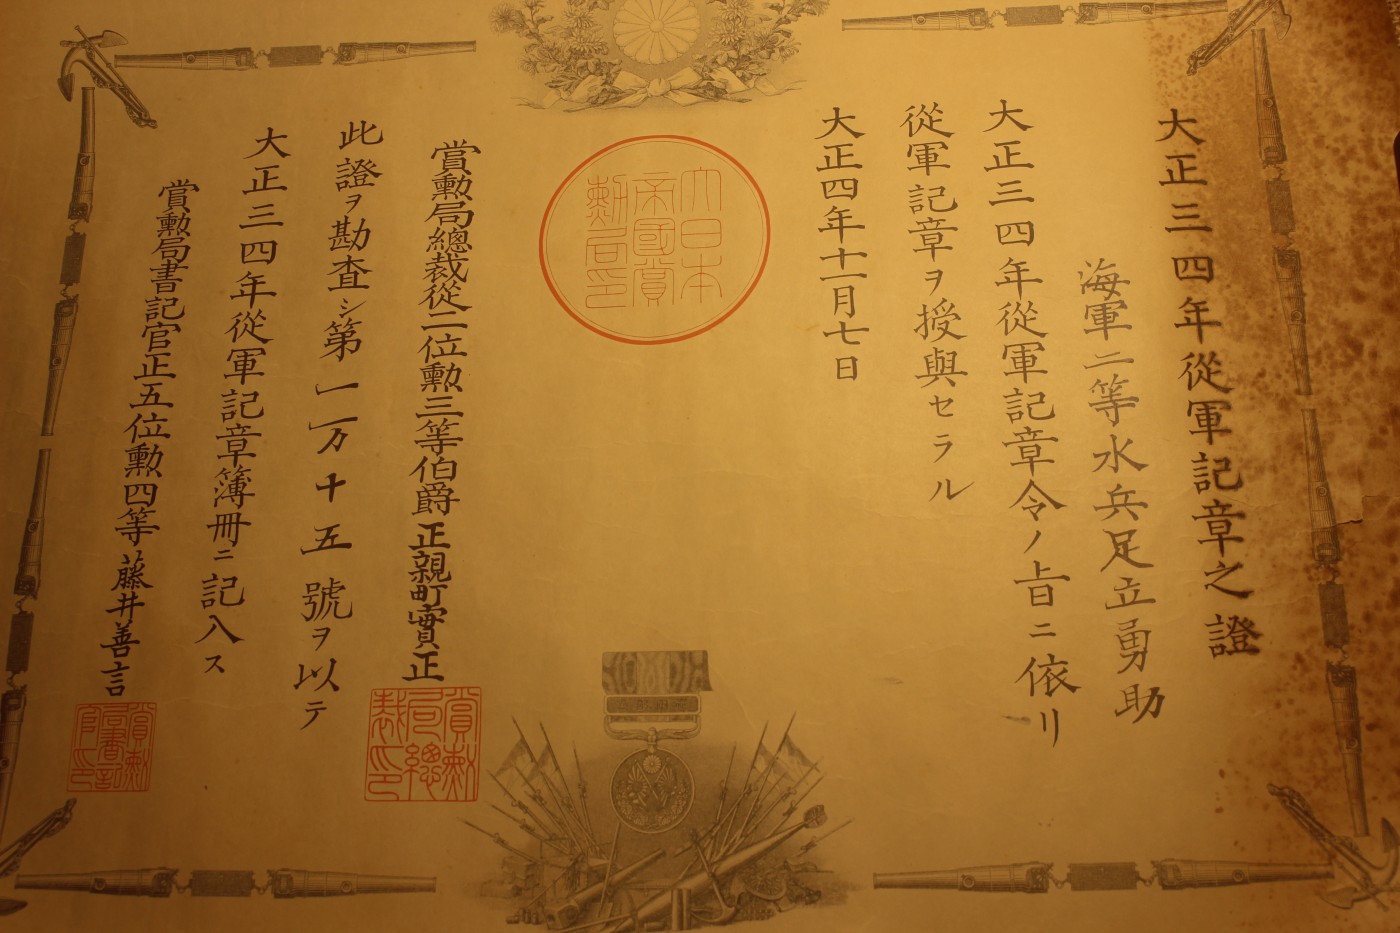 大正三四年從軍記章之證
海軍二等水兵足立勇助
大正三四年從軍記章令ノ旨ニ依リ
從軍記章ヲ授與セラル
大正四年十一月七日
大日本
帝國賞
勲局印
賞勲局總裁從二位勲三等伯爵正親町實正
賞勲
局總
裁印
此證ヲ勘査シ第一一万十五號ヲ以テ
大正三四年從軍記章簿冊ニ記入ス
賞勲局書記官正五位勲四等藤井善言
賞勲
局書記
官印